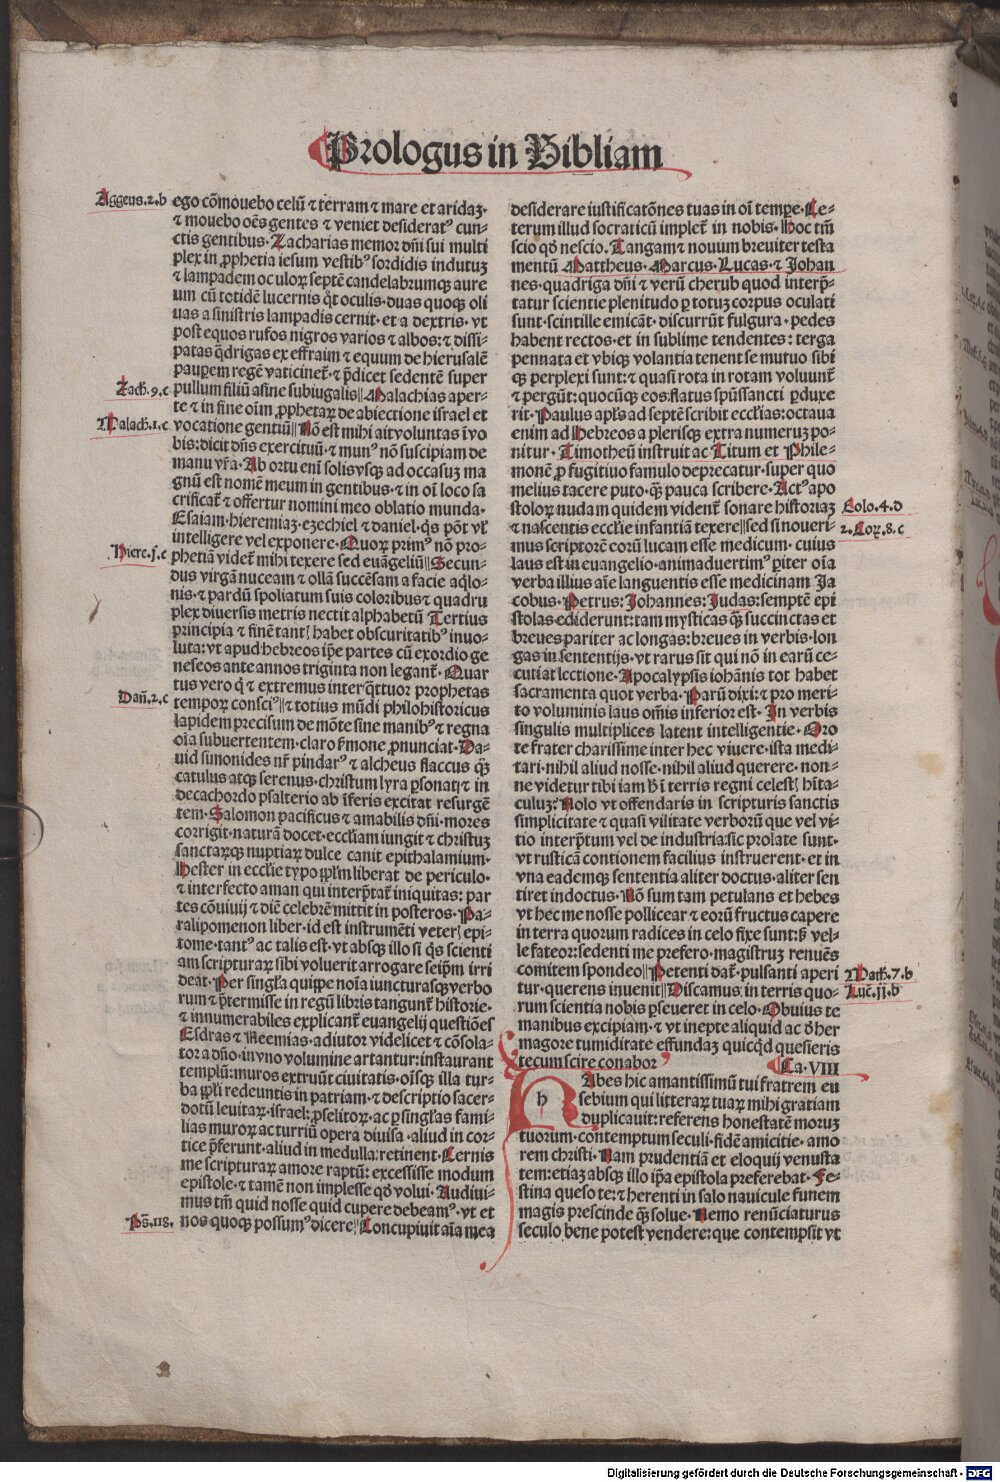 Prologus in Bibliam
Aggeus.2.b
ego cõmouebo celũ ⁊ terram ⁊ mare et aridaꝫ.
⁊ mouebo oẽs gentes ⁊ veniet desideratꝰ cun-
ctis gentibus. Zacharias memor dñi sui multi
plex in ꝓphetia iesum vestibꝰ sordidis indutuꝫ
⁊ lampadem oculoꝝ septẽ candelabrumqꝫ aure
um cũ totidẽ lucernis q̃t oculis. duas quoqꝫ oli
uas a sinistris lampadis cernit. et a dextris. vt
post equos rufos nigros varios ⁊ albos: ⁊ dissi-
patas q̃drigas ex effraim ⁊ equum de hierusalẽ
pauꝑem regẽ vaticinet̃. ⁊ p̃dicet sedentẽ super
Zach.9.c
pullum filiũ asine subiugalis|| Malachias aper-
te ⁊ in fine oĩm ꝓphetaꝝ de abiectione israel et
Malach.1.c
vocatione gentiũ|| Nõ est mihi ait voluntas ĩ vo
bis: dicit dñs exercituũ. ⁊ munꝰ nõ suscipiam de
manu vr̃a. Ab ortu enĩ solis vsqꝫ ad occasuꝫ ma
gnũ est nomẽ meum in gentibus. ⁊ in oĩ loco sa
crificat̃ ⁊ offertur nomini meo oblatio munda.
Esaiam. hieremiaꝫ. eꝫechiel ⁊ daniel. q̃s põt vł
intelligere vel exponere. Quoꝝ primꝰ nõ pro-
Hiere.j.c
phetiã videt̃ mihi texere sed euãgeliũ|| Secun-
dus virgã nuceam ⁊ ollã succẽsam a facie aq̃lo-
nis. ⁊ pardũ spoliatum suis coloribus ⁊ quadru
plex diuersis metris nectit alphabetũ Tertius
principia ⁊ finẽ tantꝭ habet obscuritatibꝰ inuo-
luta: vt apud hebreos ip̃e partes cũ exordio ge
neseos ante annos triginta non legant̃. Quar
tus vero q̃ ⁊ extremus inter q̃ttuor prophetas
Dañ.2.c
tempoꝝ consciꝰ|| ⁊ totius mũdi philohistoricus
lapidem precisum de mõte sine manibꝰ ⁊ regna
oĩa subuertentem. claro f̃mone ꝓnunciat. Da-
uid simonides nr̃ pindarꝰ ⁊ alcheus flaccus q̃ꝫ
catulus atqꝫ serenus. christum lyra ꝑsonat: ⁊ in
decachordo psalterio ab ĩferis excitat resurgẽ
tem. Salomon pacificus ⁊ amabilis dñi. mores
corrigit. naturã docet. eccłiam iungit ⁊ christuꝫ
sanctaꝝqꝫ nuptiaꝝ dulce canit epithalamium.
Hester in eccłie typo ꝓp̃lm liberat de periculo.
⁊ interfecto aman qui interp̃tat̃ iniquitas: par
tes cõuiuij ⁊ diẽ celebrẽ mittit in posteros. Pa-
ralipomenon liber. id est instrumẽti veterꝭ epi-
tome. tantꝰ ac talis est. vt absqꝫ illo si q̃s scienti
am scripturaꝝ sibi voluerit arrogare seip̃m irri
deat. Per singl̃a quip̃e noĩa iuncturasqꝫ verbo
rum ⁊ p̃termisse in regũ libris tangunt̃ historie.
⁊ innumerabiles explicant̃ euangelij questiões
Esdras ⁊ Neemias. adiutor videlicet ⁊ cõsola-
tor a dño. in vno volumine artantur: instaurant
templũ: muros extruũt ciuitatis. oĩsqꝫ illa tur-
ba pp̃li redeuntis in patriam. ⁊ descriptio sacer-
dotũ leuitaꝝ. israel: ꝓselitoꝝ. ac ꝑ singl̃as fami-
lias muroꝝ ac turriũ opera diuisa. aliud in cor-
tice p̃ferunt. aliud in medulla: retinent. Cernis
me scripturaꝝ amore raptũ: excessisse modum
epistole. ⁊ tamẽ non implesse qđ volui. Audiui-
mus tm̃ quid nosse quid cupere debeamꝰ. vt et
Ps̃.118.
nos quoqꝫ possumꝰ dicere|| Concupiuit aĩa mea
desiderare iustificatõnes tuas in oĩ tempe. Ce-
terum illud socraticũ implet̃ in nobis. Hoc tm̃
scio qđ nescio. Tangam ⁊ nouum breuiter testa
mentũ Mattheus. Marcus. Lucas. ⁊ Johan
nes. quadriga dñi ⁊ verũ cherub quod interp̃-
tatur scientie plenitudo ꝑ totuꝫ corpus oculati
sunt. scintille emicãt. discurrũt fulgura. pedes
habent rectos. et in sublime tendentes: terga
pennata et vbiqꝫ volantia tenent se mutuo sibi
qꝫ perplexi sunt: ⁊ quasi rota in rotam voluunt̃
⁊ pergũt: quocũqꝫ eos flatus spũssancti ꝑduxe
rit. Paulus apłs ad septẽ scribit eccłias: octaua
enim ad Hebreos a plerisqꝫ extra numeruꝫ po-
nitur. Timotheũ instruit ac Titum et Phile-
monẽ ꝓ fugitiuo famulo deprecatur. super quo
melius tacere puto. q̃ꝫ pauca scribere. Actꝰ apo
Colo.4.d
stoloꝝ nudam quidem vident̃ sonare historiaꝫ
2.Coꝝ.8.c
⁊ nascentis eccłie infantiã texere|| sed si noueri-
mus scriptorẽ eorũ lucam esse medicum. cuius
laus est in euangelio. animaduertimꝰ ꝑiter oĩa
verba illius aĩe languentis esse medicinam Ja
cobus. Petrus: Johannes: Judas: septẽ epi
stolas ediderunt: tam mysticas q̃ꝫ succinctas et
breues pariter ac longas: breues in verbis. lon
gas in sententijs. vt rarus sit qui nõ in earũ ce-
cutiat lectione. Apocalypsis iohãnis tot habet
sacramenta quot verba. Parũ dixi: ⁊ pro meri-
to voluminis laus om̃is inferior est. In verbis
singulis multiplices latent intelligentie. Oro
te frater charissime inter hec viuere. ista medi-
tari. nihil aliud nosse. nihil aliud querere. non-
ne videtur tibi iam hĩ ĩ terris regni celestꝭ hĩta-
culuꝫ? Nolo vt offendaris in scripturis sanctis
simplicitate ⁊ quasi vilitate verborũ que vel vi-
tio interp̃tum vel de industria: sic prolate sunt.
vt rusticã contionem facilius instruerent. et in
vna eademqꝫ sententia aliter doctus. aliter sen
tiret indoctus. Nõ sum tam petulans et hebes
vt hec me nosse pollicear ⁊ eorũ fructus capere
in terra quorum radices in celo fixe sunt: sꝫ vel-
le fateor: sedenti me prefero. magistruꝫ renuẽs
Math.7.b
comitem spondeo|| Petenti dat̃. pulsanti aperi
Luc̃.jj.b
tur. querens inuenit|| Discamus in terris quo-
rum scientia nobis ꝑseueret in celo. Obuius te
manibus excipiam. ⁊ vt inepte aliquid ac đ her
magore tumiditate effundaꝫ quicq̃d quesieris
tecum scire conabor
Ca.VIII
h Abes hic amantissimũ tui fratrem eu
sebium qui litteraꝝ tuaꝝ mihi gratiam
duplicauit: referens honestatẽ moruꝫ
tuorum. contemptum seculi. fidẽ amicitie. amo
rem christi. Nam prudentiã et eloquij venusta
tem: etiaꝫ absqꝫ illo ip̃a epistola preferebat. Fe-
stina queso te: ⁊ herenti in salo nauicule funem
magis prescinde q̃ꝫ solue. Nemo renũciaturus
seculo bene potest vendere: que contempsit vt
Digitalisierung gefördert durch die Deutsche Forschungsgemeinschaft - DFG